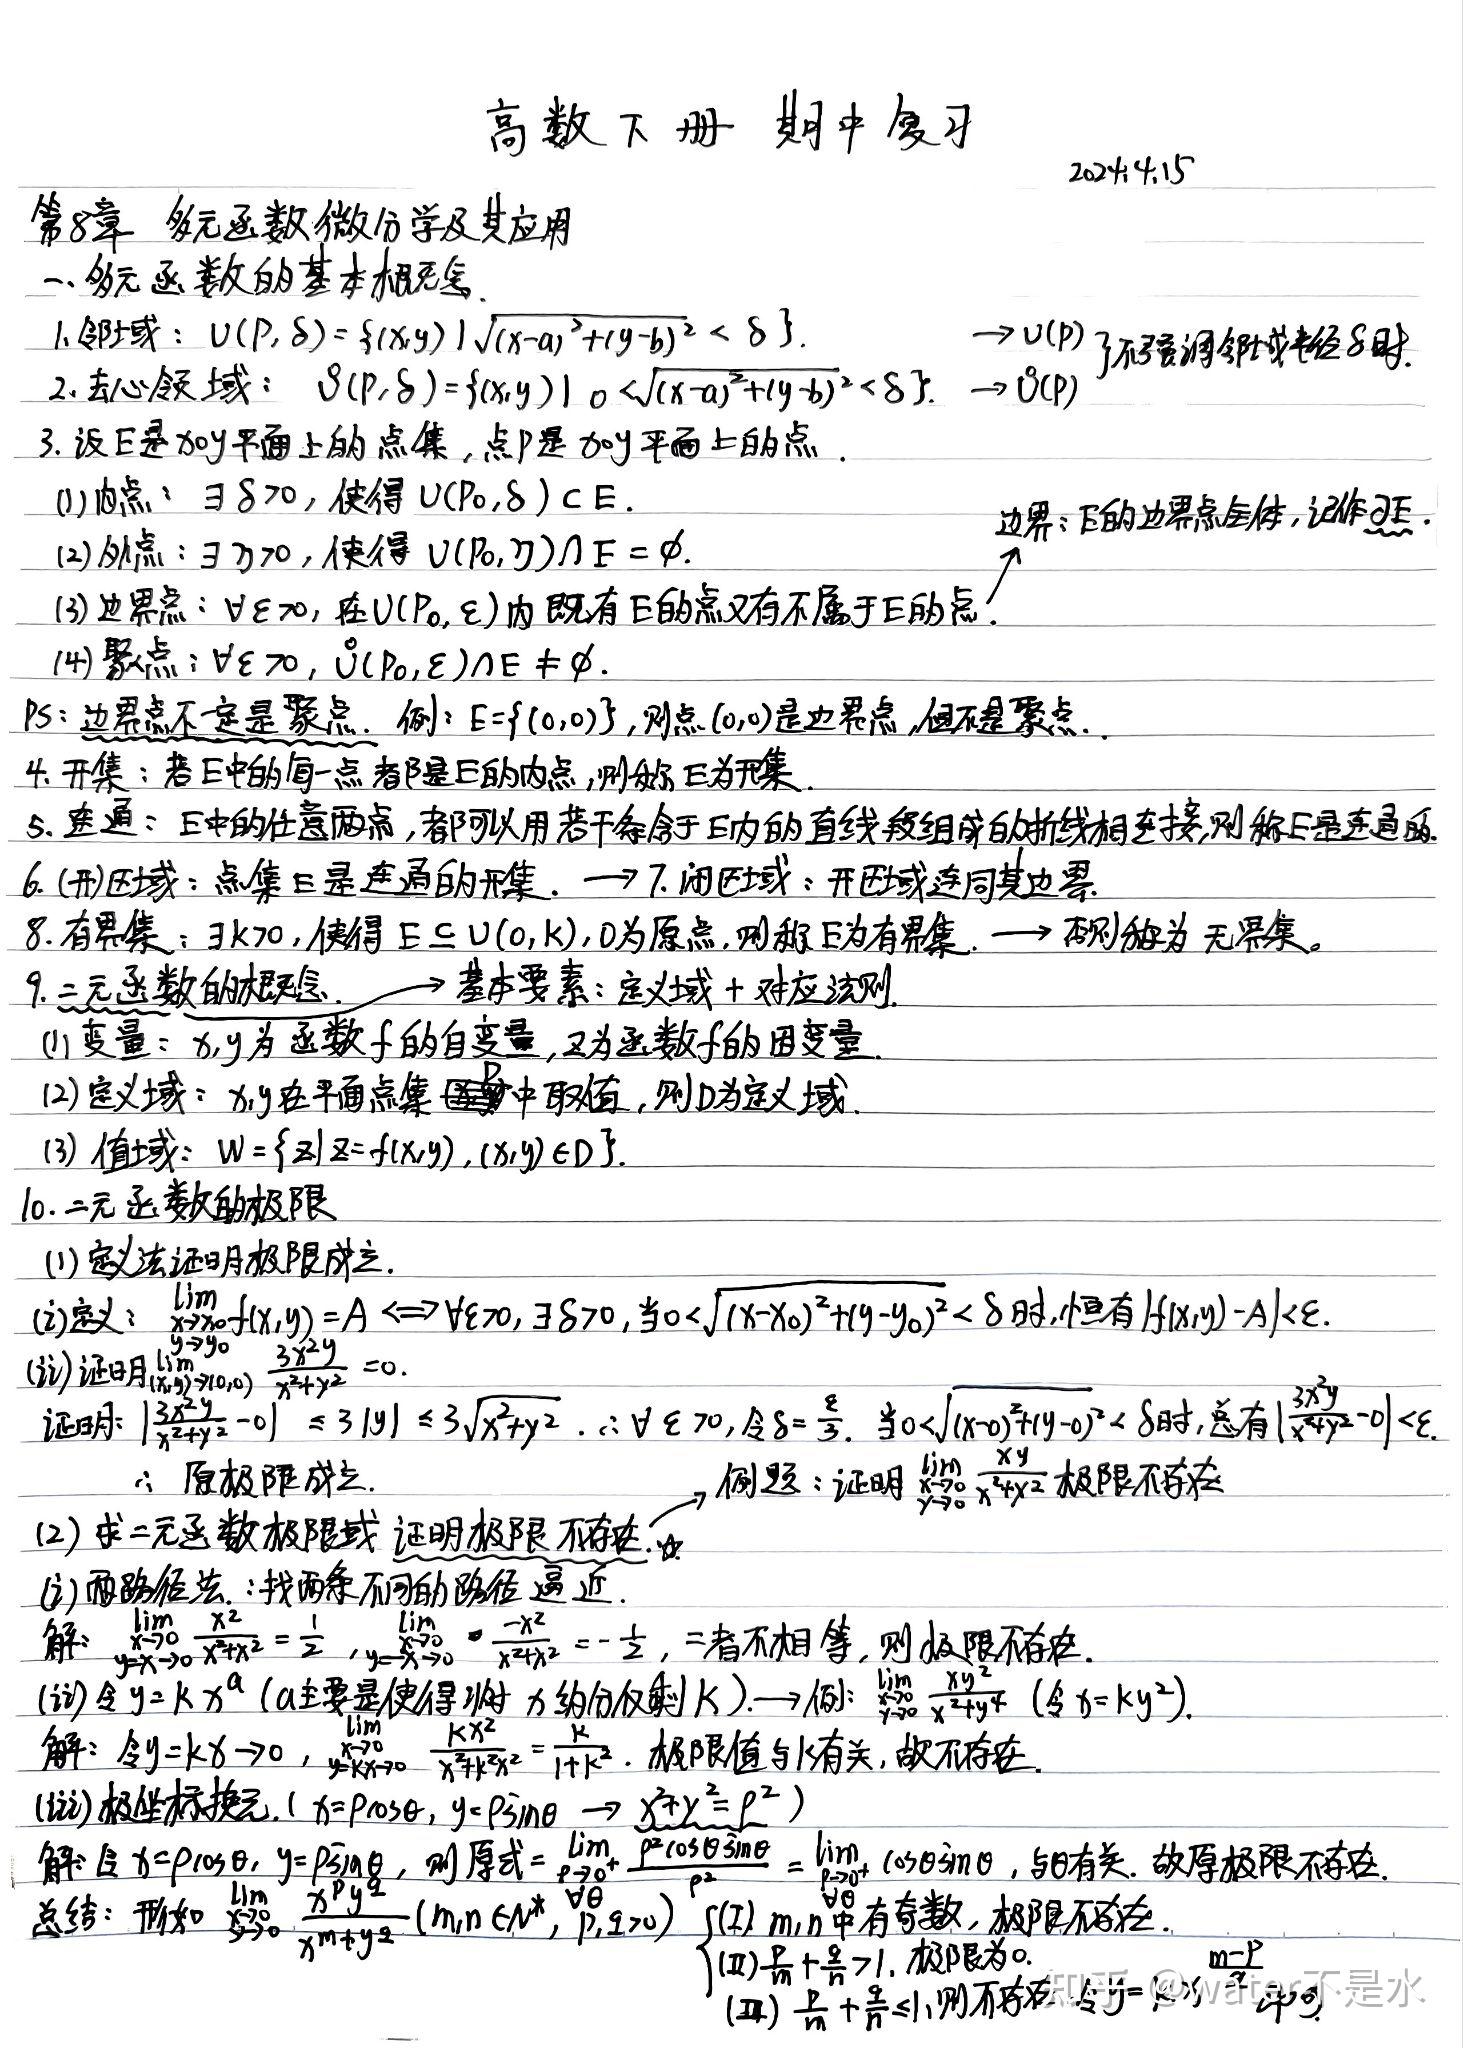 高数下册 期中复习
2024.4.15
第8章 多元函数微分学及其应用
一、多元函数的基本概念.
1.邻域: U(P,δ)={(x,y)|√((x-a)²+(y-b)²)<δ}. →U(P) }不强调邻域半径δ时.
2.去心领域: Ů(P,δ)={(x,y)|0<√((x-a)²+(y-b)²)<δ}. →Ů(P)
3.设E是xoy平面上的点集,点P是xoy平面上的点.
(1)内点: ∃δ>0,使得U(P₀,δ)⊂E.
边界:E的边界点全体,记作∂E.
(2)外点:∃η>0,使得U(P₀,η)∩E=∅.
(3)边界点:∀ε>0,在U(P₀,ε)内既有E的点又有不属于E的点.
(4)聚点:∀ε>0,Ů(P₀,ε)∩E≠∅.
PS:边界点不一定是聚点. 例:E={(0,0)},则点(0,0)是边界点,但不是聚点.
4.开集:若E中的每一点都是E的内点,则称E为开集.
5.连通:E中的任意两点,都可以用若干条含于E内的直线段组成的折线相连接,则称E是连通的.
6.(开)区域:点集E是连通的开集. →7.闭区域:开区域连同其边界.
8.有界集:∃k>0,使得E⊆U(0,K),O为原点,则称E为有界集. →否则称为无界集。
9.二元函数的概念. →基本要素:定义域+对应法则.
(1)变量:x,y为函数f的自变量,z为函数f的因变量.
(2)定义域:x,y在平面点集D中取值,则D为定义域.
(3)值域:W={z|z=f(x,y),(x,y)∈D}.
10.二元函数的极限
(1)定义法证明极限成立.
(i)定义: lim x→x₀ y→y₀ f(x,y)=A⟺∀ε>0,∃δ>0,当0<√((x-x₀)²+(y-y₀)²)<δ时,恒有|f(x,y)-A|<ε.
(ii)证明 lim (x,y)→(0,0) 3x²y/(x²+y²)=0.
证明:|3x²y/(x²+y²)-0|≤3|y|≤3√(x²+y²).∴∀ε>0,令δ=ε/3. 当0<√((x-0)²+(y-0)²)<δ时,总有|3x²y/(x²+y²)-0|<ε.
∴原极限成立.
例题:证明 lim x→0 y→0 xy/(x²+y²) 极限不存在
(2)求二元函数极限或证明极限不存在.☆
(i)两路径法:找两条不同的路径逼近.
解: lim x→0 y=x→0 x²/(x²+x²)=1/2, lim x→0 y=-x→0 -x²/(x²+x²)=-1/2,二者不相等,则极限不存在.
(ii)令y=kxᵃ(a主要是使得 x约分仅剩K).→例: lim x→0 y→0 xy²/(x²+y⁴)(令x=ky²).
解:令y=kx→0, lim x→0 y=kx→0 kx²/(x²+k²x²)=k/(1+k²).极限值与k有关,故不存在.
(iii)极坐标换元.(x=ρcosθ,y=ρsinθ→x²+y²=ρ²)
解:令x=ρcosθ,y=ρsinθ,则原式= lim ρ→0⁺ ∀θ ρ²cosθsinθ/ρ² = lim ρ→0⁺ ∀θ cosθsinθ,与θ有关.故原极限不存在.
总结:形如 lim x→0 y→0 xᵖy^q/(xᵐ+y^q)(m,n∈N*,p,q>0) {(Ⅰ)m,n中有奇数,极限不存在.
(Ⅱ)p/m+q/n>1,极限为0.
(Ⅲ)p/m+q/n≤1,则不存在,令y=kx^((m-p)/q)即可.
知乎 @water不是水